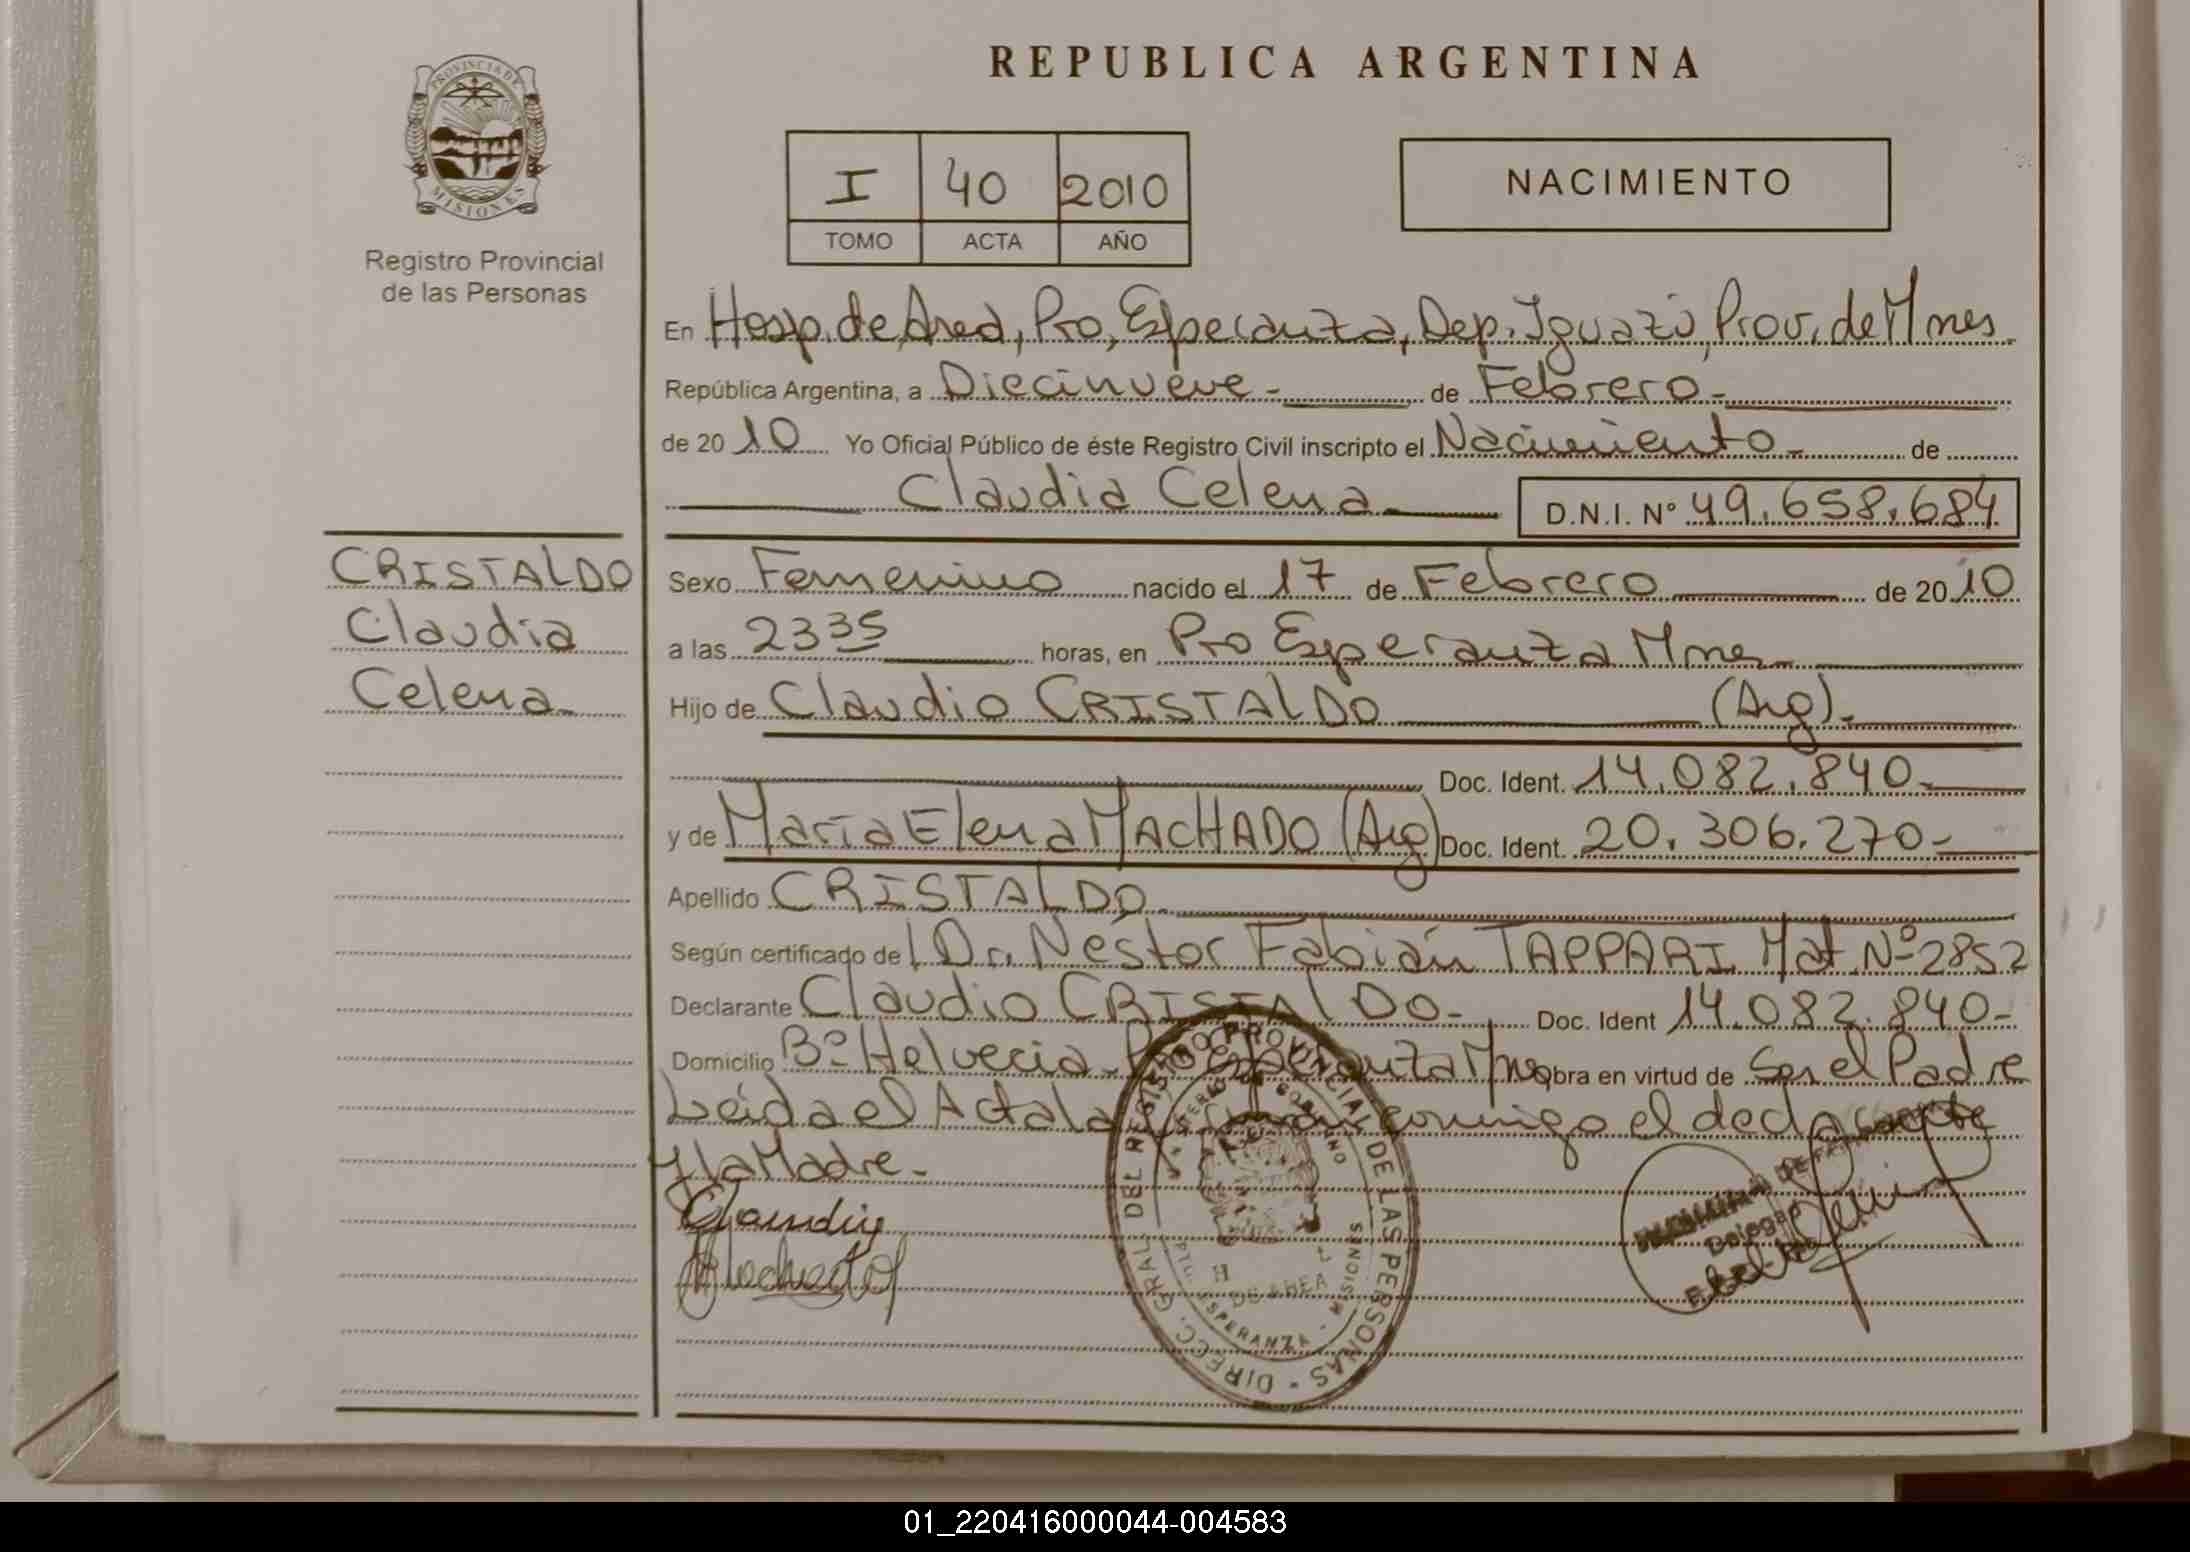 PROVINCIA DE
MISIONES
Registro Provincial
de las Personas
CRISTALDO
Claudia
Celena
REPUBLICA ARGENTINA
I 40 2010
TOMO ACTA AÑO
NACIMIENTO
En Hosp. de Area, Pto, Esperanza, Dep. Iguazú, Prov. de Mnes
República Argentina, a Diecinueve de Febrero
de 2010 Yo Oficial Público de éste Registro Civil inscripto el Nacimiento de
Claudia Celena D.N.I. Nº 49.658.684
Sexo Femenino nacido el 17 de Febrero de 2010
a las 2335 horas, en Pto Esperanza Mnes
Hijo de Claudio CRISTALDO (Arg)
Doc. Ident. 14.082.840
y de María Elena MACHADO (Arg) Doc. Ident. 20.306.270
Apellido CRISTALDO
Según certificado del Dr. Néstor Fabián TAPPARI Mat. Nº 2852
Declarante Claudio CRISTALDO Doc. Ident 14.082.840
Domicilio Bº Helvecia Pto Esperanza Mnes obra en virtud de Ser el Padre
Leida el Acta la firman conmigo el declarante
y la Madre
DIRECC. GRAL. DEL REGISTRO PROVINCIAL DE LAS PERSONAS
MINISTERIO DE GOBIERNO
DE AREA
PTO. ESPERANZA - MISIONES
01_220416000044-004583